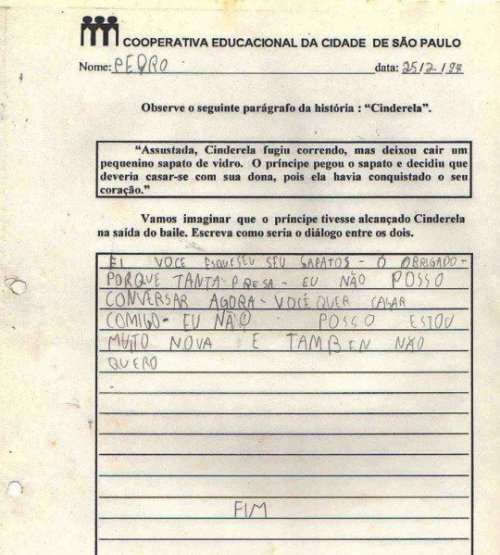 COOPERATIVA EDUCACIONAL DA CIDADE DE SÃO PAULO
Nome: PEDRO data: 25/2/97
Observe o seguinte parágrafo da história : “Cinderela”.
“Assustada, Cinderela fugiu correndo, mas deixou cair um
pequenino sapato de vidro. O príncipe pegou o sapato e decidiu que
deveria casar-se com sua dona, pois ela havia conquistado o seu
coração.”
Vamos imaginar que o príncipe tivesse alcançado Cinderela
na saída do baile. Escreva como seria o diálogo entre os dois.
EI VOCE ESQUESEU SEU SAPATOS - O OBRIGADO -
PORQUE TANTA PRESA - EU NÃO POSSO
CONVERSAR AGORA - VOCÊ QUER CASAR
COMIGO - EU NÃO POSSO ESTOU
MUITO NOVA E TAMBEN NÃO
QUERO
.
FIM